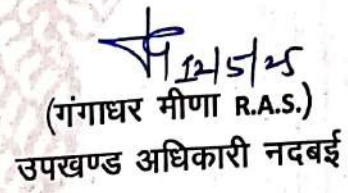 12/5/25
(गंगाधर मीणा R.A.S.)
उपखण्ड अधिकारी नदबई